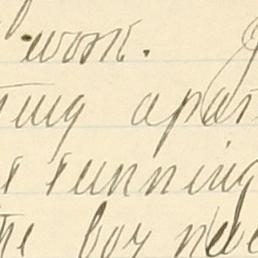 work.
ting apar
running
the boy neve